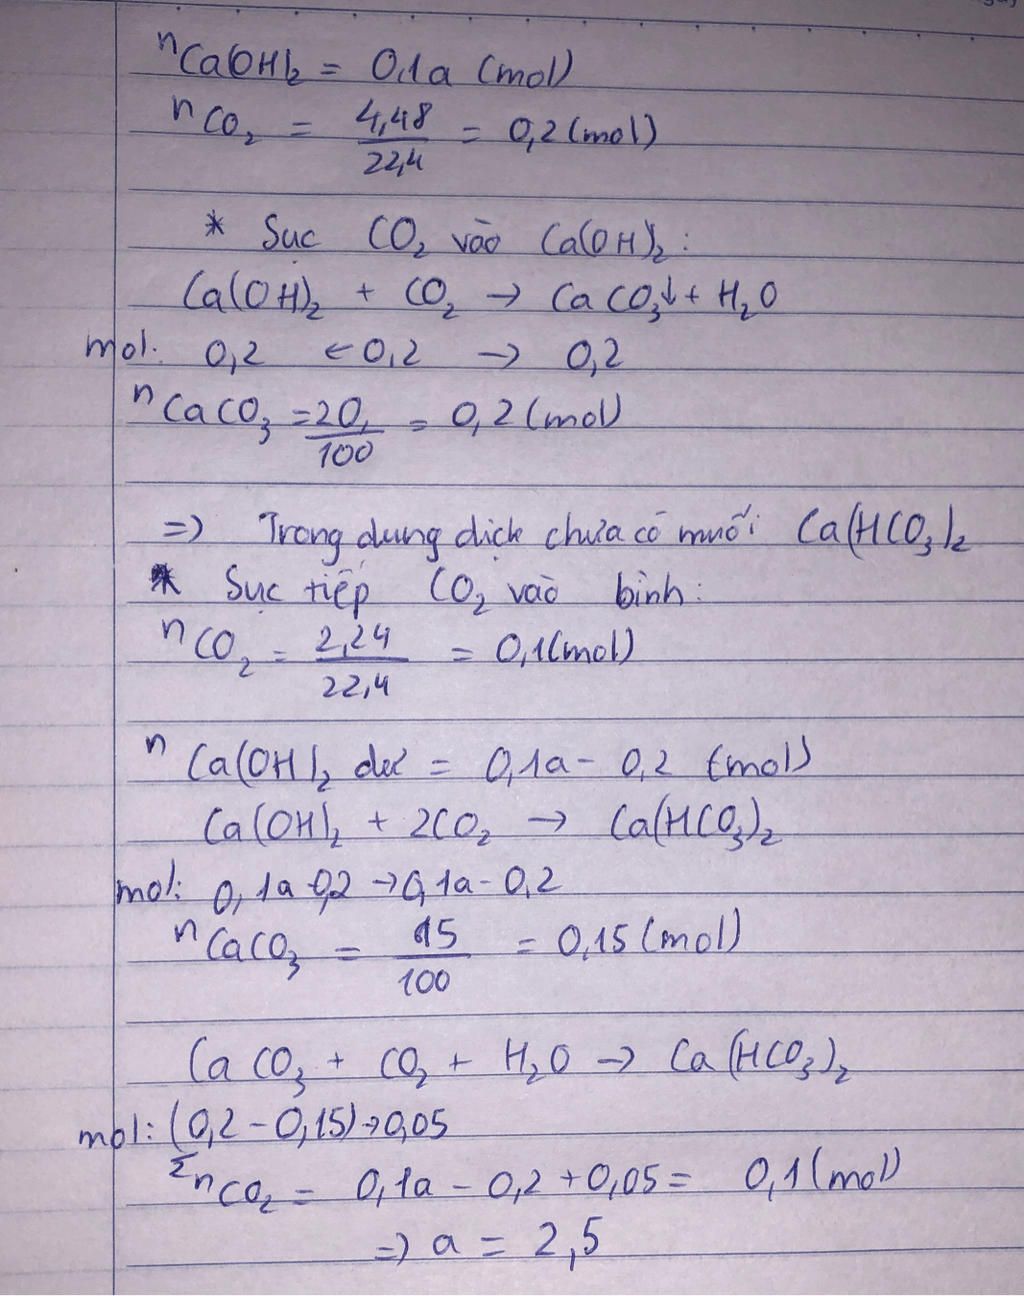 nCa(OH)₂ = 0,1a (mol)
nCO₂ = 4,48/22,4 = 0,2 (mol)
* Sục CO₂ vào Ca(OH)₂ :
Ca(OH)₂ + CO₂ → CaCO₃↓ + H₂O
mol: 0,2 ← 0,2 → 0,2
nCaCO₃ = 20/100 = 0,2 (mol)
=) Trong dung dịch chưa có muối Ca(HCO₃)₂
* Sục tiếp CO₂ vào bình :
nCO₂ = 2,24/22,4 = 0,1 (mol)
nCa(OH)₂ dư = 0,1a - 0,2 (mol)
Ca(OH)₂ + 2CO₂ → Ca(HCO₃)₂
mol: 0,1a 0,2 → 0,1a - 0,2
nCaCO₃ = 15/100 = 0,15 (mol)
CaCO₃ + CO₂ + H₂O → Ca(HCO₃)₂
mol: (0,2 - 0,15) → 0,05
ΣnCO₂ = 0,1a - 0,2 + 0,05 = 0,1 (mol)
=) a = 2,5